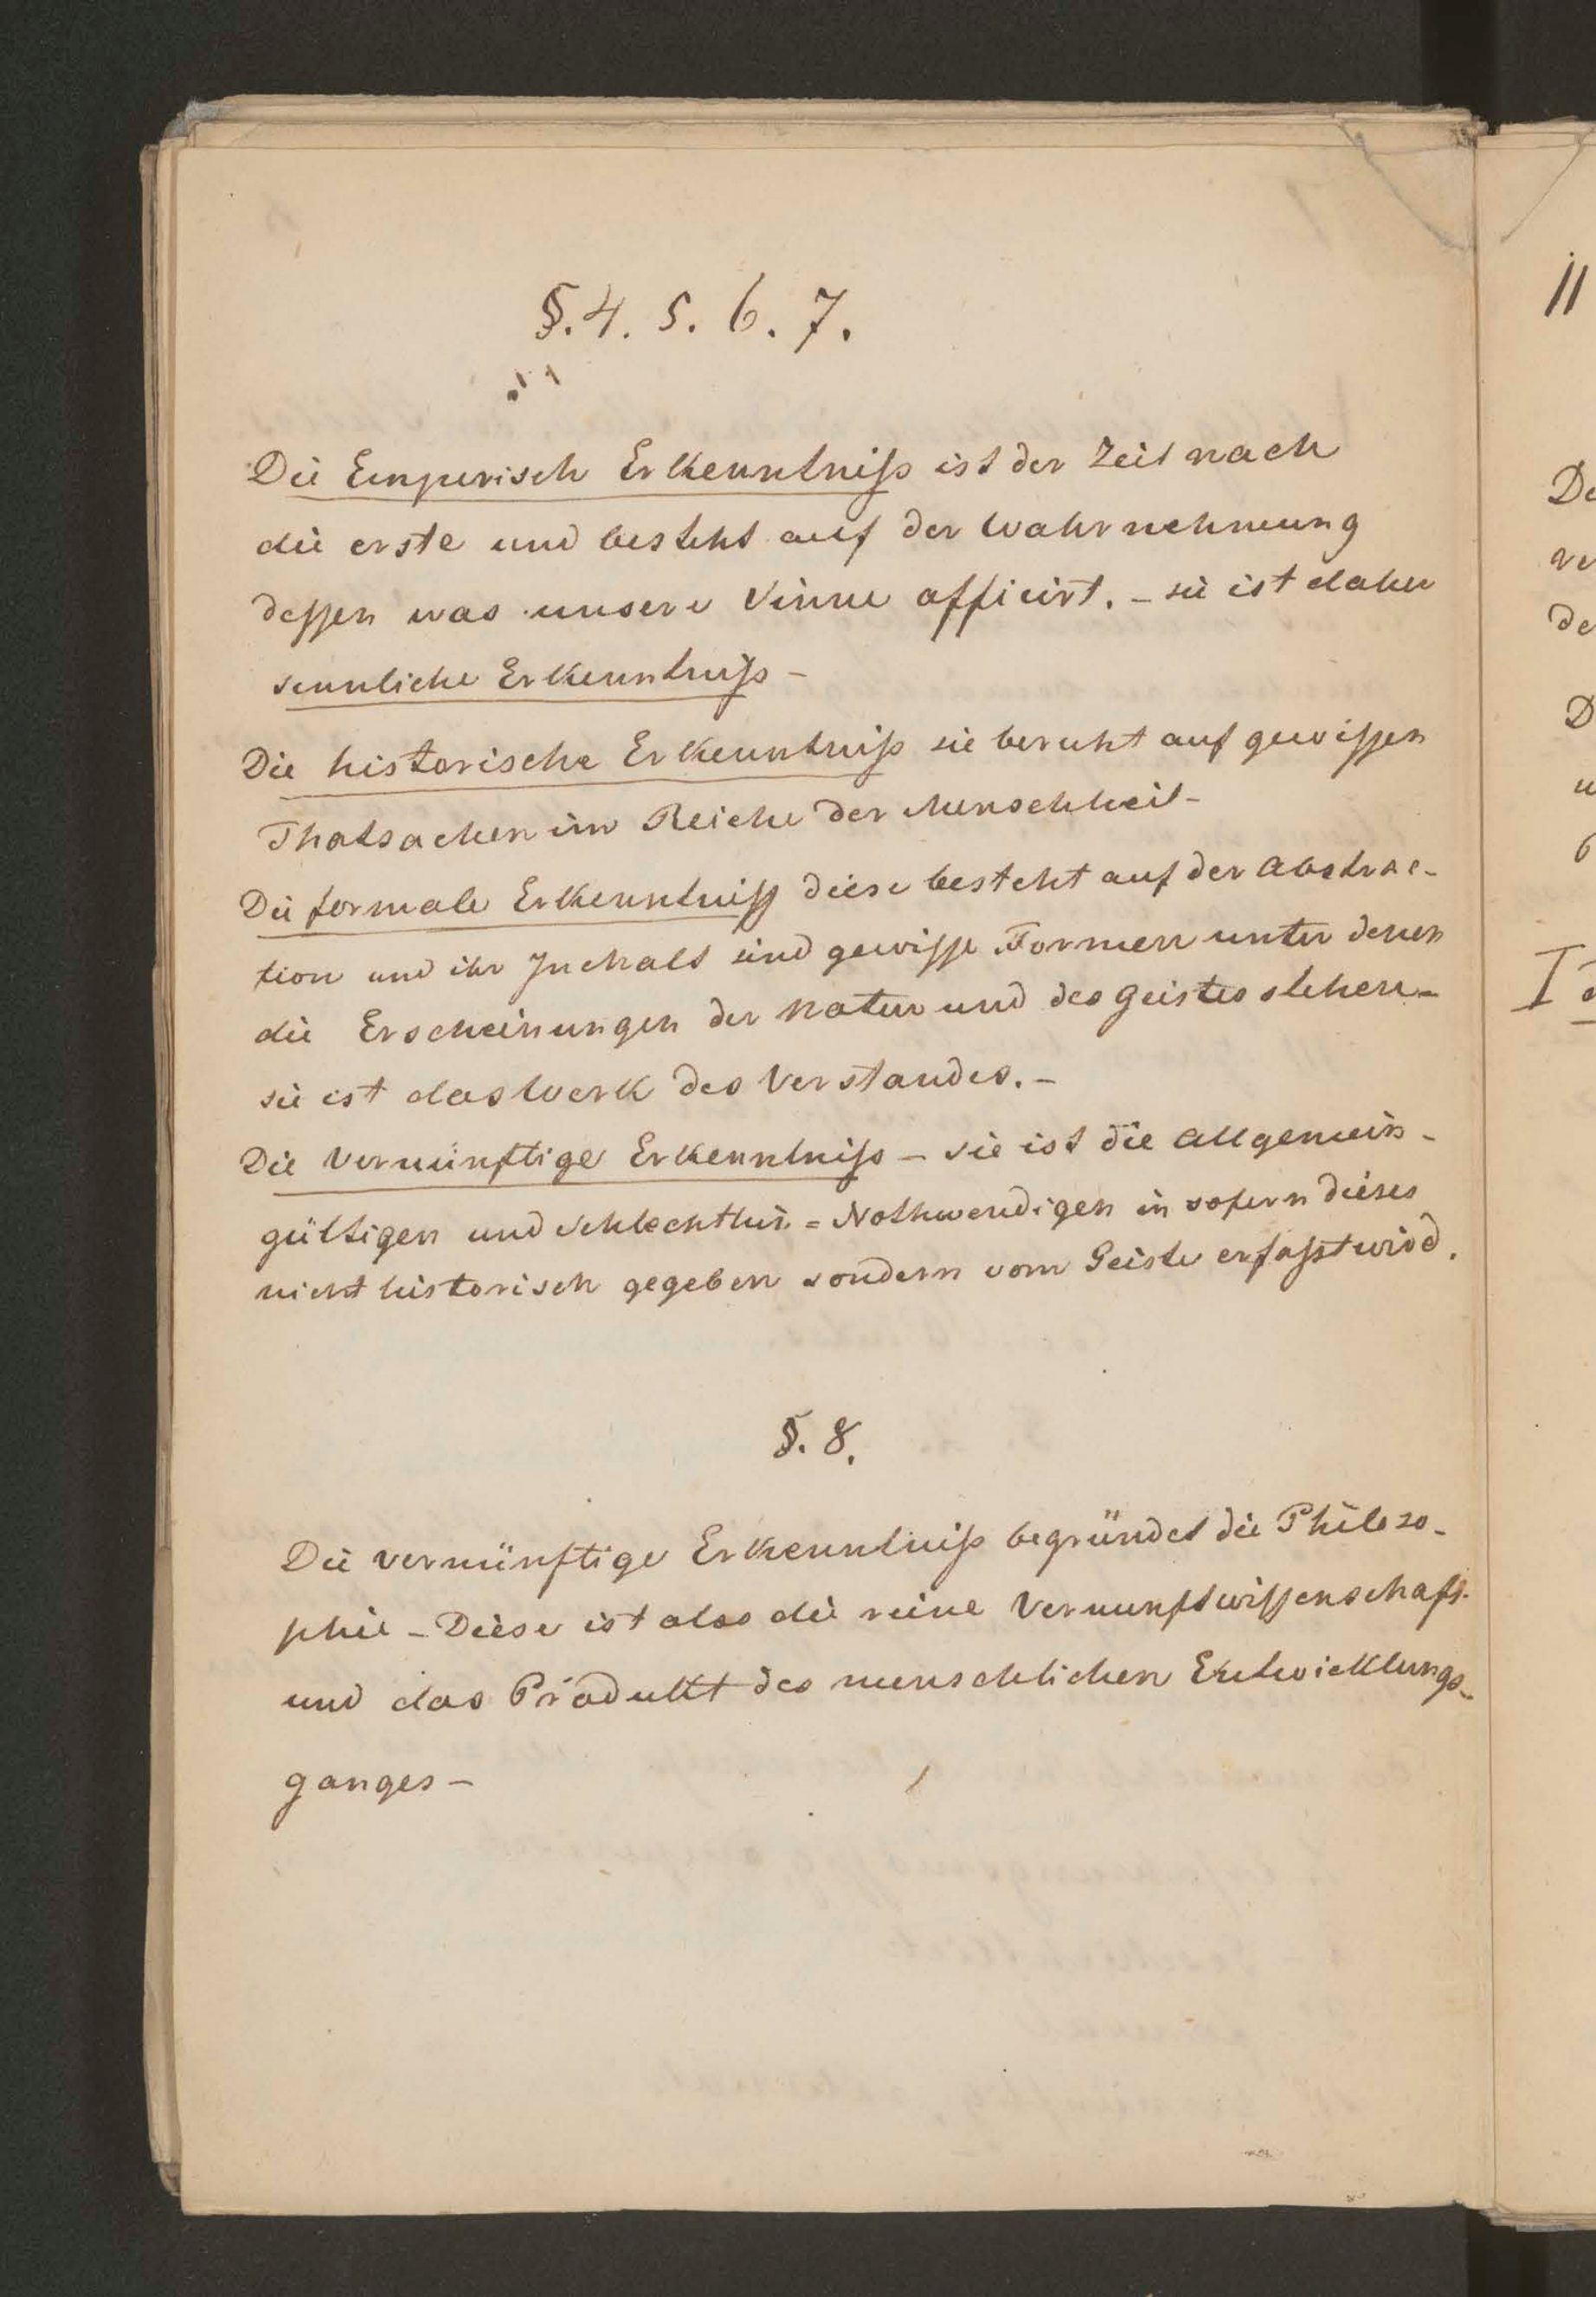 §. 4. 5. 6. 7.
Die Emperisch Erkenntniß ist der Zeit nach
die erste und besteht auf der Wahrnehmung
deßen was unsere Sinne afficirt. – sie ist daher
sinnliche Erkenntniß –
Die historische Erkenntniß sie beruht auf gewißen
Thatsachen im Reiche der Menschheit –
Die formale Erkenntniß diese besteht auf der Abstrac-
tion und ihr Inchalt sind gewiße Formen unter denen
die Erscheinungen der Natur und des Geistes stehen –
sie ist das Werk des Verstandes. –
Die Vernünftige Erkenntniß – sie ist die Allgemein-
gültigen und schlechthin = Nothwendigen in sofern dieses
nicht historisch gegeben sondern vom Geiste erfaßt wird.
§. 8.
Die vernünftige Erkenntniß begründet die Philoso-
phie – Diese ist also die reine Vernunftwißenschaft.
und das Produkt des menschlichen Entwicklungs-
ganges –
11
De
ve
de
D
u
6
I